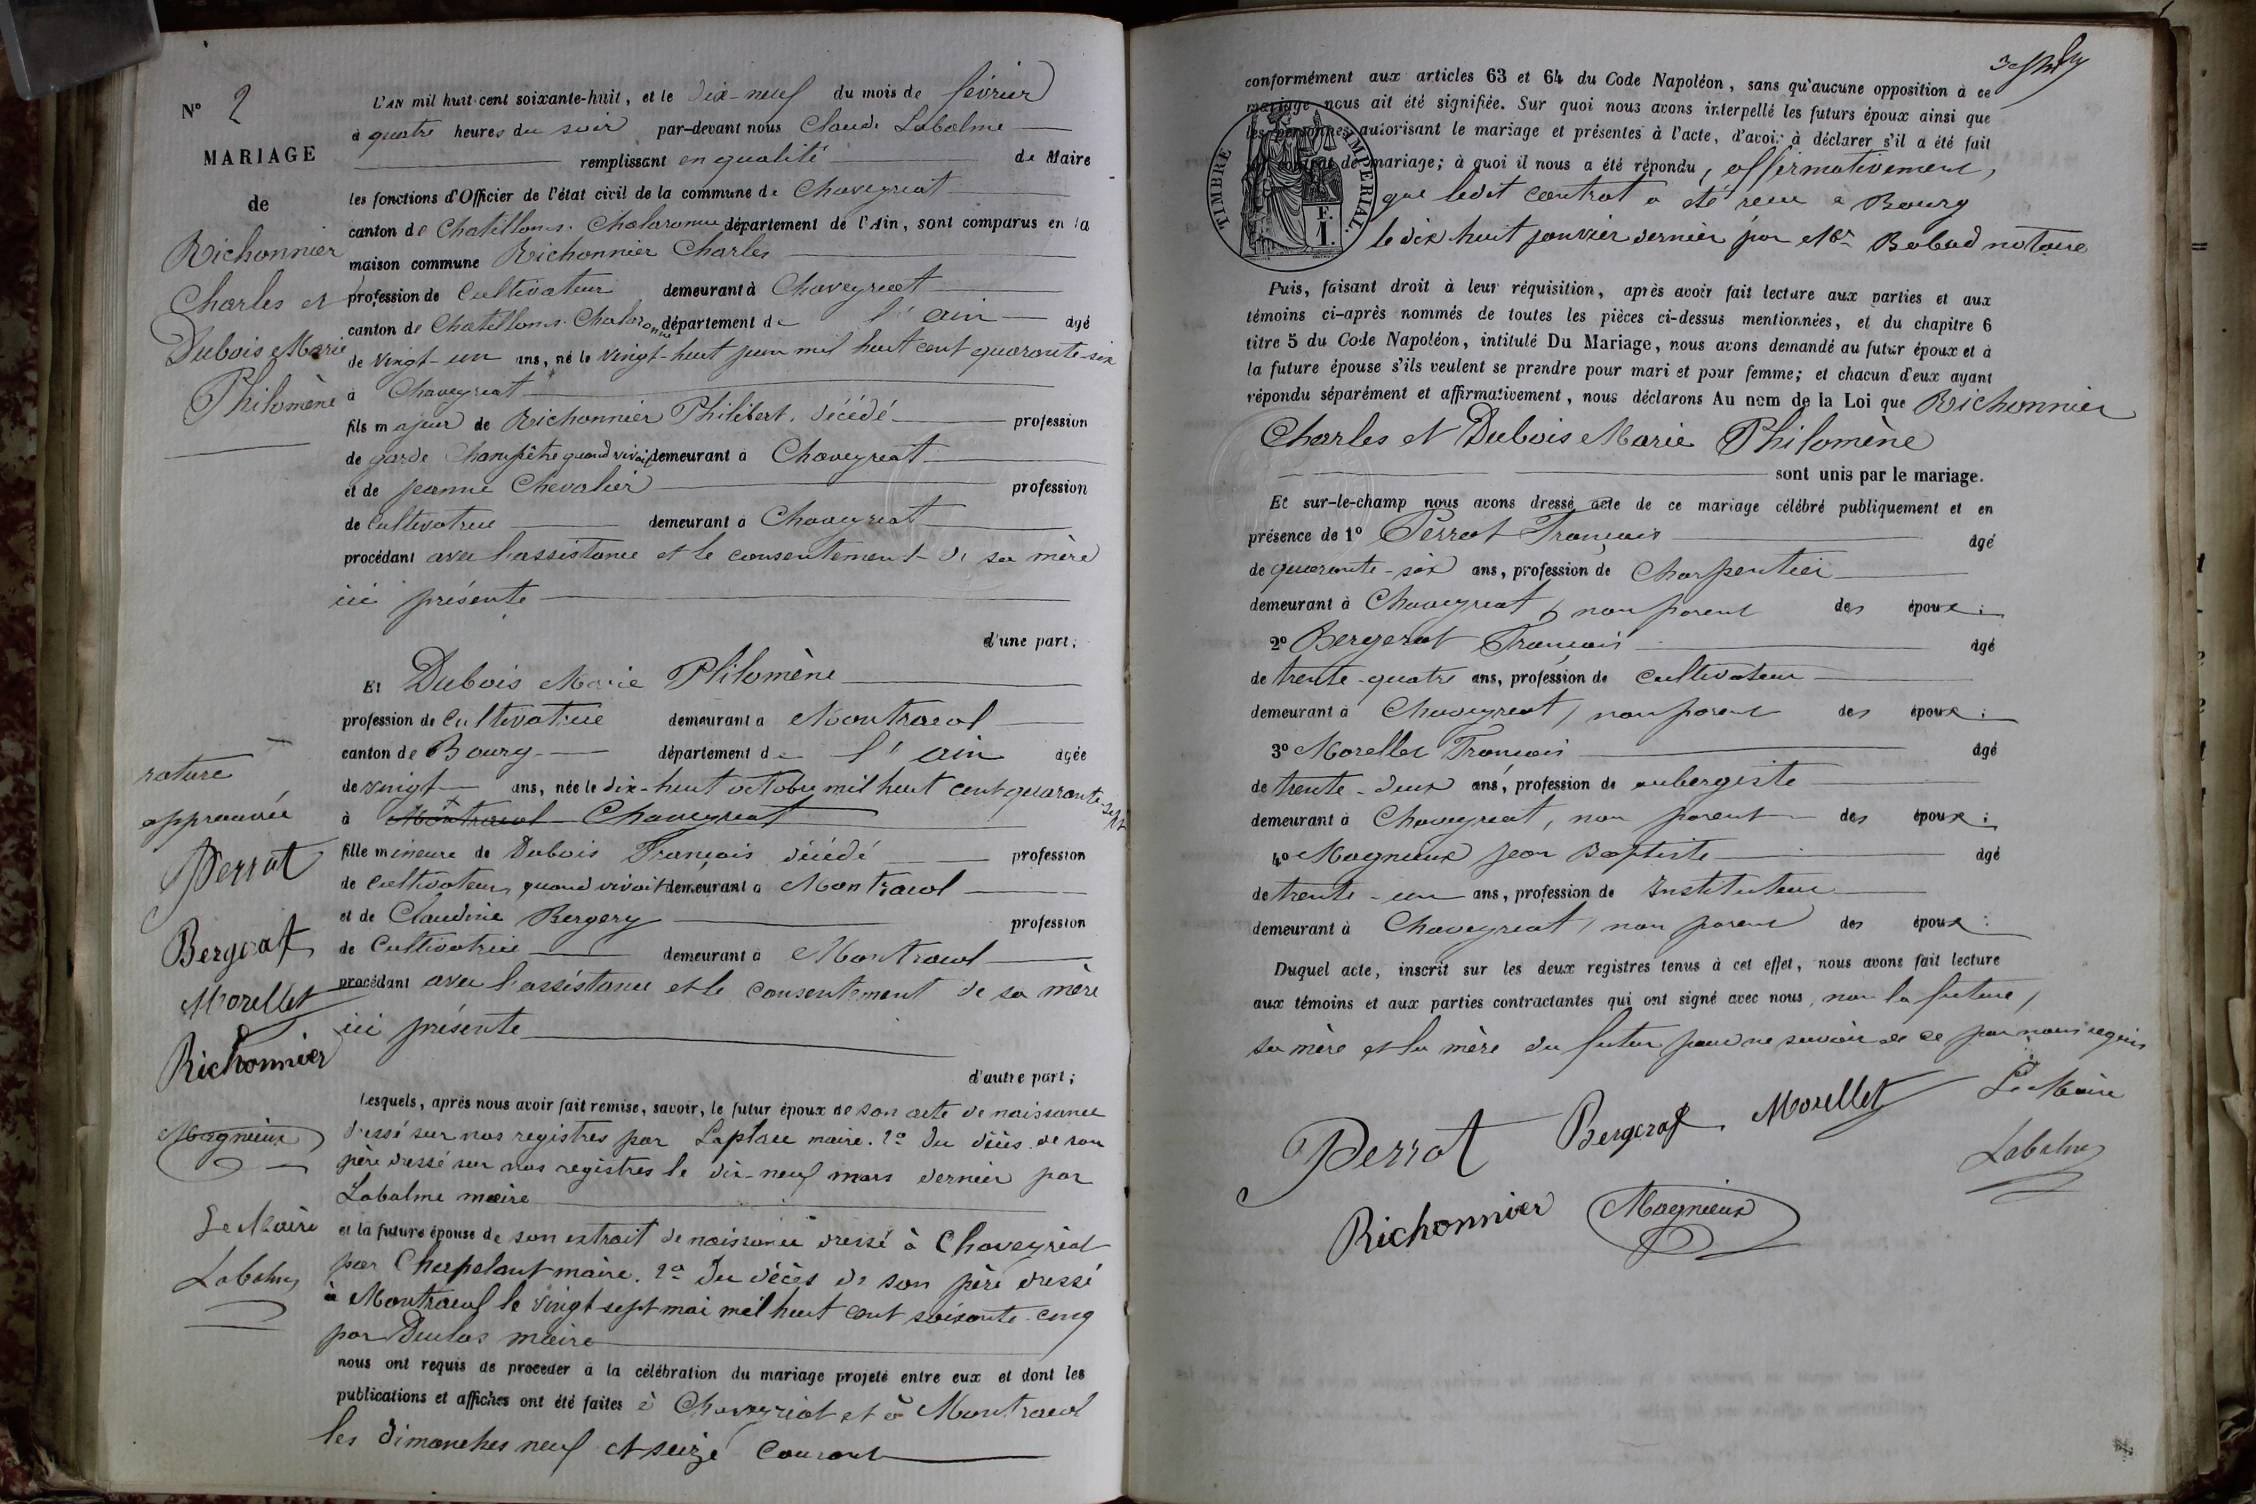 N° 2
MARIAGE
de
Richonnier
Charles et
Dubois Marie
Philomène
rature
approuvée
Perrot
Bergerat
Morellet
Richonnier
Magnieux
Le Maire
Labalme
L'AN mil huit cent soixante-huit, et le dix-neuf du mois de février
à quatre heures du soir par-devant nous Claude Labalme
remplissant en qualité de Maire
les fonctions d'Officier de l'état civil de la commune de Chaveyriat
canton de Chatillon s. Chalaronne département de l'Ain, sont comparus en la
maison commune Richonnier Charles
profession de Cultivateur demeurant à Chaveyriat
canton de Chatillon s. Chalaronne département de l'ain âgé
de vingt-un ans, né le vingt-huit juin mil huit cent quarante-six
à Chaveyriat
fils majeur de Richonnier Philibert, décédé profession
de garde Champêtre quand vivait demeurant à Chaveyriat
et de Jeanne Chevalier profession
de Cultivatrice demeurant à Chaveyriat
procédant avec l'assistance et le consentement de sa mère
ici présente
d'une part;
Et Dubois Marie Philomène
profession de Cultivatrice demeurant à Montracol
canton de Bourg département de l'ain âgée
de vingt ans, née le dix-huit octobre mil huit cent quarante-sept
à Montracol Chaveyriat
fille mineure de Dubois François décédé profession
de Cultivateur, quand vivait demeurant à Montracol
et de Claudine Bergery profession
de Cultivatrice demeurant à Montracol
procédant avec l'assistance et le consentement de sa mère
ici présente
d'autre part;
Lesquels, après nous avoir fait remise, savoir, le futur époux de son acte de naissance
dressé sur nos registres par Laplace maire. 2° du décès de son
père dressé sur nos registres le dix-neuf mars dernier par
Labalme maire
et la future épouse de son extrait de naissance dressé à Chaveyriat
par Chapelant maire. 2° du décès de son père dressé
à Montracol le vingt-sept mai mil huit cent soixante-cinq
par Duclos maire
nous ont requis de procéder à la célébration du mariage projeté entre eux et dont les
publications et affiches ont été faites à Chaveyriat et à Montracol
les dimanches neuf et seize courant
conformément aux articles 63 et 64 du Code Napoléon, sans qu'aucune opposition à ce
mariage nous ait été signifiée. Sur quoi nous avons interpellé les futurs époux ainsi que
les personnes autorisant le mariage et présentes à l'acte, d'avoir à déclarer s'il a été fait
de mariage; à quoi il nous a été répondu, affirmativement,
TIMBRE IMPÉRIAL
F. 1.
que ledit contrat a été reçu à Bourg
le dix huit janvier dernier par Me Babad notaire
Puis, faisant droit à leur réquisition, après avoir fait lecture aux parties et aux
témoins ci-après nommés de toutes les pièces ci-dessus mentionnées, et du chapitre 6
titre 5 du Code Napoléon, intitulé Du Mariage, nous avons demandé au futur époux et à
la future épouse s'ils veulent se prendre pour mari et pour femme; et chacun d'eux ayant
répondu séparément et affirmativement, nous déclarons Au nom de la Loi que Richonnier
Charles et Dubois Marie Philomène
sont unis par le mariage.
Et sur-le-champ nous avons dressé acte de ce mariage célébré publiquement et en
présence de 1° Perrot François âgé
de quarante-six ans, profession de Charpentier
demeurant à Chaveyriat, non parent des époux;
2° Bergerat François âgé
de trente-quatre ans, profession de Cultivateur
demeurant à Chaveyriat, non parent des époux;
3° Morellet François âgé
de trente-deux ans, profession de aubergiste
demeurant à Chaveyriat, non parent des époux;
4° Magnieux Jean Baptiste âgé
de trente-un ans, profession de Instituteur
demeurant à Chaveyriat, non parent des époux;
Duquel acte, inscrit sur les deux registres tenus à cet effet, nous avons fait lecture
aux témoins et aux parties contractantes qui ont signé avec nous, non la future,
sa mère et la mère du futur pour ne savoir de ce par nous requis
Le Maire
Perrot Bergerat Morellet
Labalme
Richonnier Magnieux